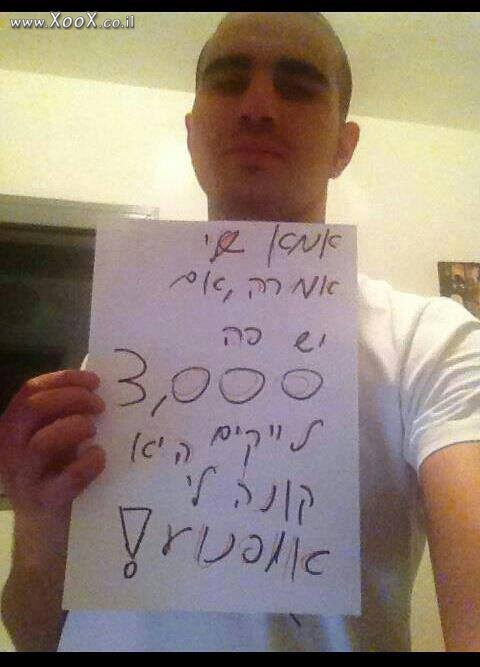 www.XooX.co.il
אמא שלי
אמרה, אם
יש פה
3,000
לייקים היא
קונה לי
אופנוע!